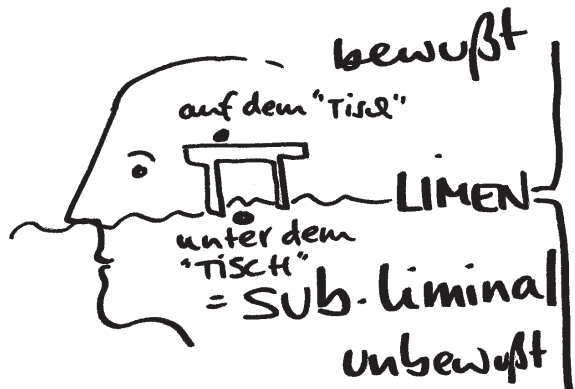 bewußt
auf dem "Tisch"
LIMEN
unter dem
"TISCH"
= SUb-liminal
unbewußt